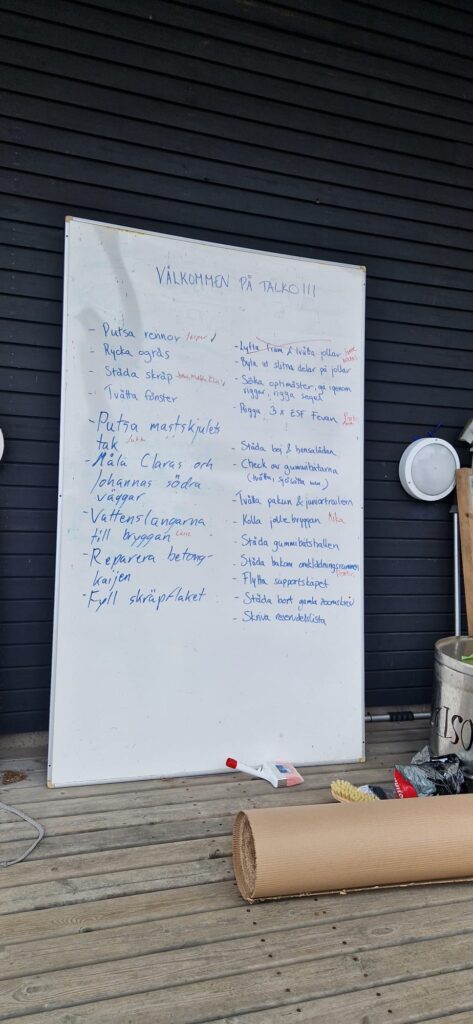 VÄLKOMMEN PÅ TALKO!!!
- Putsa rennor
- Rycka ogräs
- Städa skräp
- Tvätta fönster
- Putsa mastskjulets
tak
- Måla Claras och
Johannas södra
väggar
- Vattenslangarna
till bryggan
- Reparera betong-
kaijen
- Fyll skräpflaket
- Lyfta fram & tvätta jollar
- Byta ut slitna delar på jollar
- Söka optimaster, gå igenom
riggar, rigga segel
- Rigga 3 x ESF Fevan
- Städa boj & bensalådan
- Check av gummibåtarna
(tvätta, sjösätta mm)
Tvätta pakun & juniortrailern
- Kolla jollebryggan Nika
- Städa gummibåtshallen
- Städa bakom omklädningsrummen
- Flytta supportskåpet
- Städa bort gamla
- Skriva reservdelslista